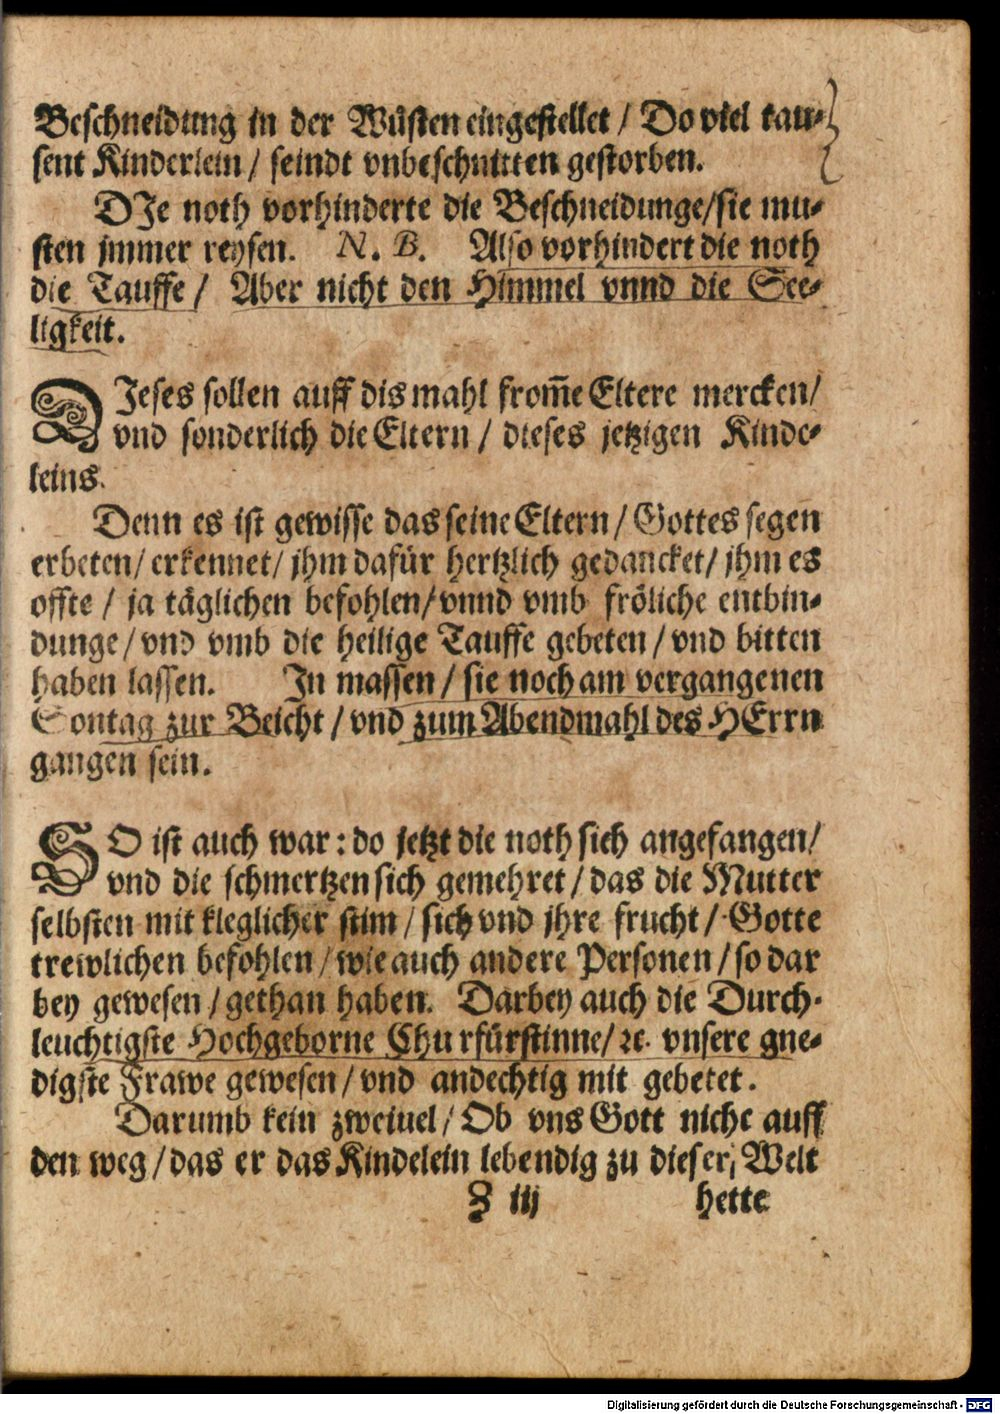 Beschneidung in der Wüsten eingestellet / Do viel tau⸗
sent Kinderlein / seindt vnbeschnitten gestorben.
DJe noth vorhinderte die Beschneidunge/sie mu⸗
sten jmmer reysen. N. B. Also vorhindert die noth
die Tauffe / Aber nicht den Himmel vnnd die See⸗
ligkeit.
DJeses sollen auff dis mahl from̃e Eltere mercken/
vnd sonderlich die Eltern / dieses jetzigen Kinde⸗
leins.
Denn es ist gewisse das seine Eltern / Gottes segen
erbeten/ erkennet/ jhm dafür hertzlich gedancket/ jhm es
offte / ja täglichen befohlen/ vnnd vmb fröliche entbin⸗
dunge / vnd vmb die heilige Tauffe gebeten / vnd bitten
haben lassen. In massen / sie noch am vergangenen
Sontag zur Beicht / vnd zum Abendmahl des HErrn
gangen sein.
SO ist auch war: do jetzt die noth sich angefangen/
vnd die schmertzen sich gemehret / das die Mutter
selbsten mit kleglicher stim / sich vnd jhre frucht / Gotte
trewlichen befohlen / wie auch andere Personen / so dar
bey gewesen / gethan haben. Darbey auch die Durch⸗
leuchtigste Hochgeborne Churfürstinne/ ꝛc. vnsere gne⸗
digste Frawe gewesen / vnd andechtig mit gebetet.
Darumb kein zweiuel / Ob vns Gott nicht auff
den weg / das er das Kindelein lebendig zu dieser Welt
Z iij hette
Digitalisierung gefördert durch die Deutsche Forschungsgemeinschaft - DFG